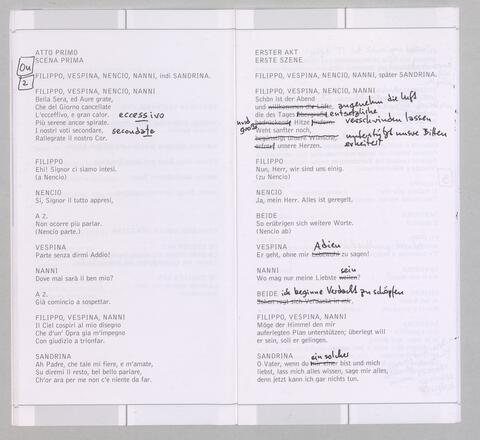 Ou
2
ATTO PRIMO
SCENA PRIMA
FILIPPO, VESPINA, NENCIO, NANNI, indi SANDRINA.
FILIPPO, VESPINA, NENCIO, NANNI
Bella Sera, ed Aure grate,
Che del Giorno cancellate
L'ecceffivo, e gran calor. eccessivo
Più serene ancor spirate.
I nostri voti secondare, secondate
Rallegrate il nostro Cor.
FILIPPO
Ehi! Signor ci siamo intesi.
(a Nencio)
NENCIO
Si, Signor il tutto appresi,
A 2.
Non ocorre più parlar.
(Nencio parte.)
VESPINA
Parte senza dirmi Addio!
NANNI
Dove mai sarà il ben mio?
A 2.
Già comincio a sospettar.
FILIPPO, VESPINA, NANNI
Il Ciel cospiri al mio disegno
Che d'un' Opra gia m'impegno
Con giudizio a trionfar.
SANDRINA
Ah Padre, che tale mi fiere, e m'amate,
Su diremi il resto, bel bello parlare,
Ch'or ara per me non c'e niente da far.
ERSTER AKT
ERSTE SZENE
FILIPPO, VESPINA, NENCIO, NANNI, später SANDRINA.
FILIPPO, VESPINA, NENCIO, NANNI
Schön ist der Abend
und willkommen die Lüfte, angenehm die Luft
die des Tages übergroße entsetzliche
und große bedrückende Hitze lindern. verschwinden lassen
Weht sanfter noch,
begünstigt unsere Wünsche, unterstützt unsre Bitten
erfreut unsere Herzen. erheitert
FILIPPO
Nun, Herr, wir sind uns einig.
(zu Nencio)
NENCIO
Ja, mein Herr. Alles ist geregelt.
BEIDE
So erübrigen sich weitere Worte.
(Nencio ab)
VESPINA Adieu
Er geht, ohne mir Lebewohl zu sagen!
NANNI sein
Wo mag nur meine Liebste weilen?
BEIDE ich beginne Verdacht zu schöpfen
Schon regt sich Verdacht in mir.
FILIPPO, VESPINA, NANNI
Möge der Himmel den mir
auferlegten Plan unterstützen; überlegt will
er sein, soll er gelingen.
SANDRINA ein solcher
O Vater, wenn du mir einer bist und mich
liebst, lass mich alles wissen, sage mir alles,
denn jetzt kann ich gar nichts tun.